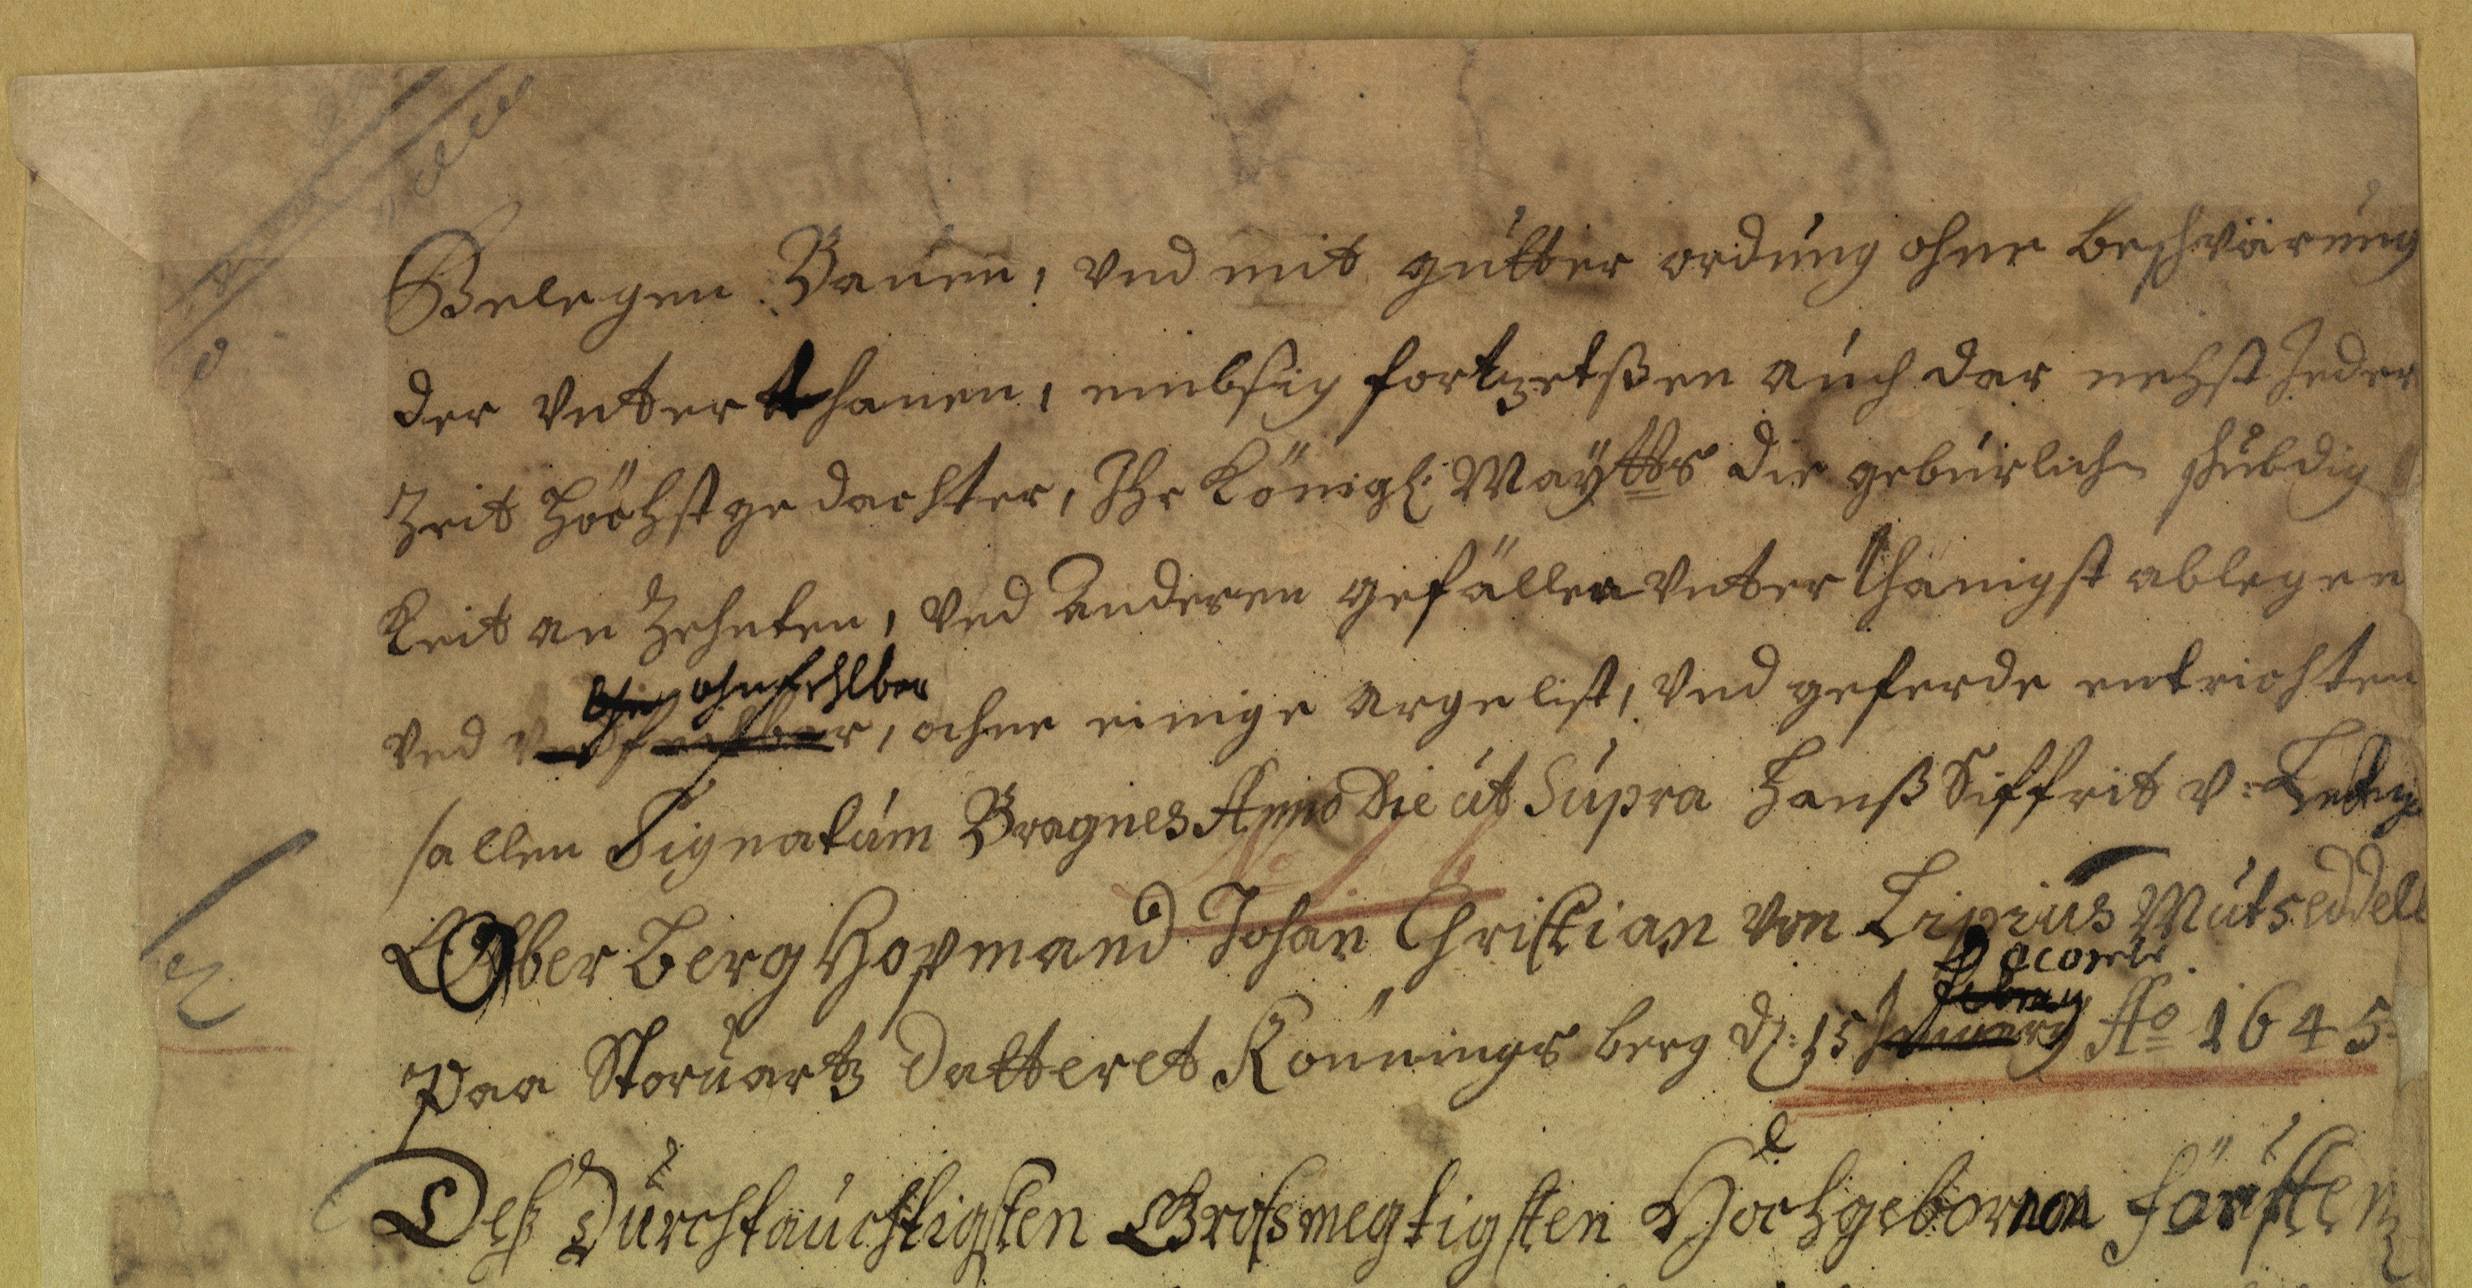 Belegen Bauen, vnd mit gutter ordung ohne beschwärung
der vnterthanen, embsig fortzetßen auch dar nehst Jeder
Zeit höchstgedachter, Ihr Königl: Maytts die gebürliche schuldig
keit an Zehnten, vnd anderen gefällen vnterthänigst ablegen
ohnfehlbar
vnd, ohne einige argelist, vnd geferde entrichten
sallen Signatum Bragnes Anno Die ut Supra Hanß Siffrit v:
Ober Berg Hopmand Johan Christian von Lipius Mutseddell
Paa Storuartz datteret Könnings berg d: 15 Ao 1645
Deß Durchlauchtigsten Grosmegtigsten Hochgebornen Försten